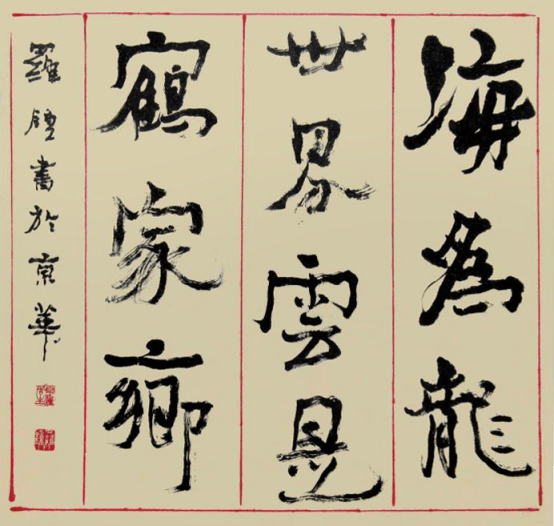 海為龍
世界雲是
鶴家鄉
羅鍾書於京華